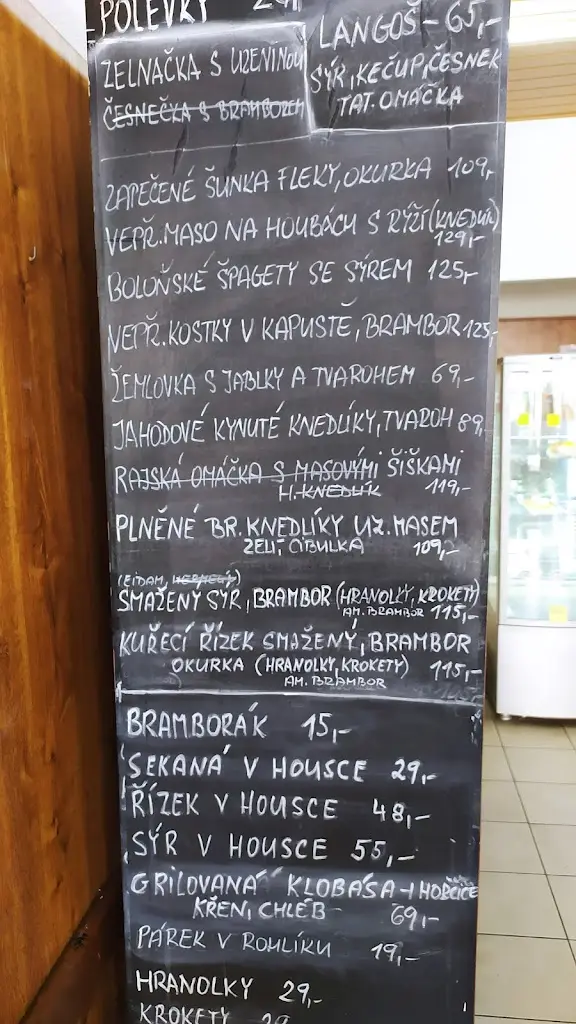 POLÉVKY 29,-
ZELNAČKA S UZENINOU
ČESNEČKA S BRAMBOREM
LANGOŠ - 65,-
SÝR, KEČUP, ČESNEK
TAT. OMAČKA
ZAPEČENÉ ŠUNKA FLEKY, OKURKA 109,-
VEPŘ. MASO NA HOUBÁCH S RÝŽÍ (KNEDLÍK)
129,-
BOLOŇSKÉ ŠPAGETY SE SÝREM 125,-
VEPŘ. KOSTKY V KAPUSTĚ, BRAMBOR 125,-
ŽEMLOVKA S JABLKY A TVAROHEM 69,-
JAHODOVÉ KYNUTÉ KNEDLÍKY, TVAROH 89,-
RAJSKÁ OMÁČKA S MASOVÝMI ŠIŠKAMI
H. KNEDLÍK 119,-
PLNĚNÉ BR. KNEDLÍKY UZ. MASEM
ZELÍ, CIBULKA 109,-
(EIDAM, HERMELÍ)
SMAŽENÝ SÝR, BRAMBOR (HRANOLKY, KROKETY)
AM. BRAMBOR 115,-
KUŘECÍ ŘÍZEK SMAŽENÝ, BRAMBOR
OKURKA (HRANOLKY, KROKETY) 115,-
AM. BRAMBOR
BRAMBORÁK 15,-
SEKANÁ V HOUSCE 29,-
ŘÍZEK V HOUSCE 48,-
SÝR V HOUSCE 55,-
GRILOVANÁ KLOBÁSA + HOŘČICE
KŘEN, CHLÉB 69,-
PÁREK V ROHLÍKU 19,-
HRANOLKY 29,-
KROKETY 29